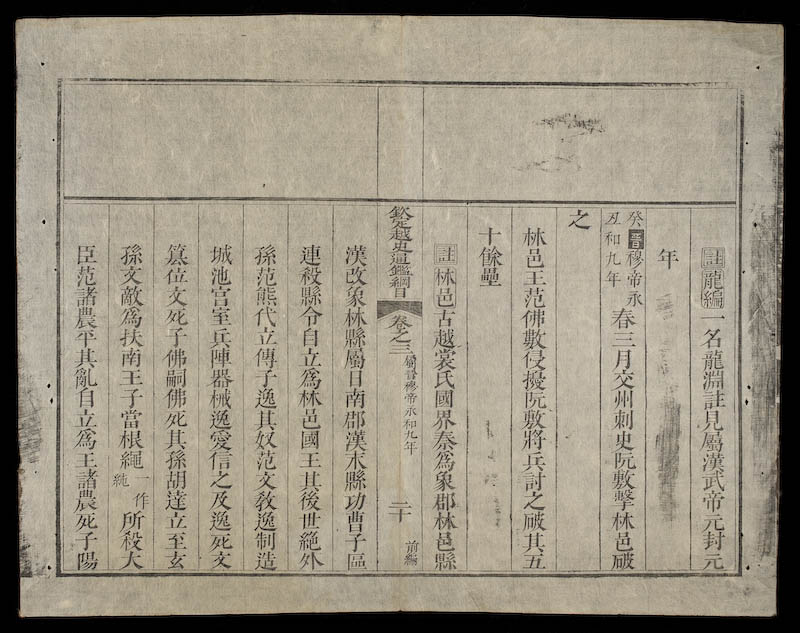 註龍編一名龍淵註見屬漢武帝元封元
年
癸丑晋穆帝永和九年春三月交州刺史阮敷擊林邑破
之
林邑王范佛數侵擾阮敷將兵討之破其五
十餘壘
註林邑古越裳氏國界秦爲象郡林邑縣
欽定越史通鑑綱目 卷之三屬晋穆帝永和九年 二十 前編
漢改象林縣屬日南郡漢末縣功曹子區
連殺縣令自立爲林邑國王其後世絶外
孫范熊代立傳子逸其奴范文敎逸制造
城池宫室兵陣器械逸愛信之及逸死文
簒位文死子佛嗣佛死其孫胡達立至玄
孫文敵爲扶南王子當根繩一作純所殺大
臣范諸農平其亂自立爲王諸農死子陽